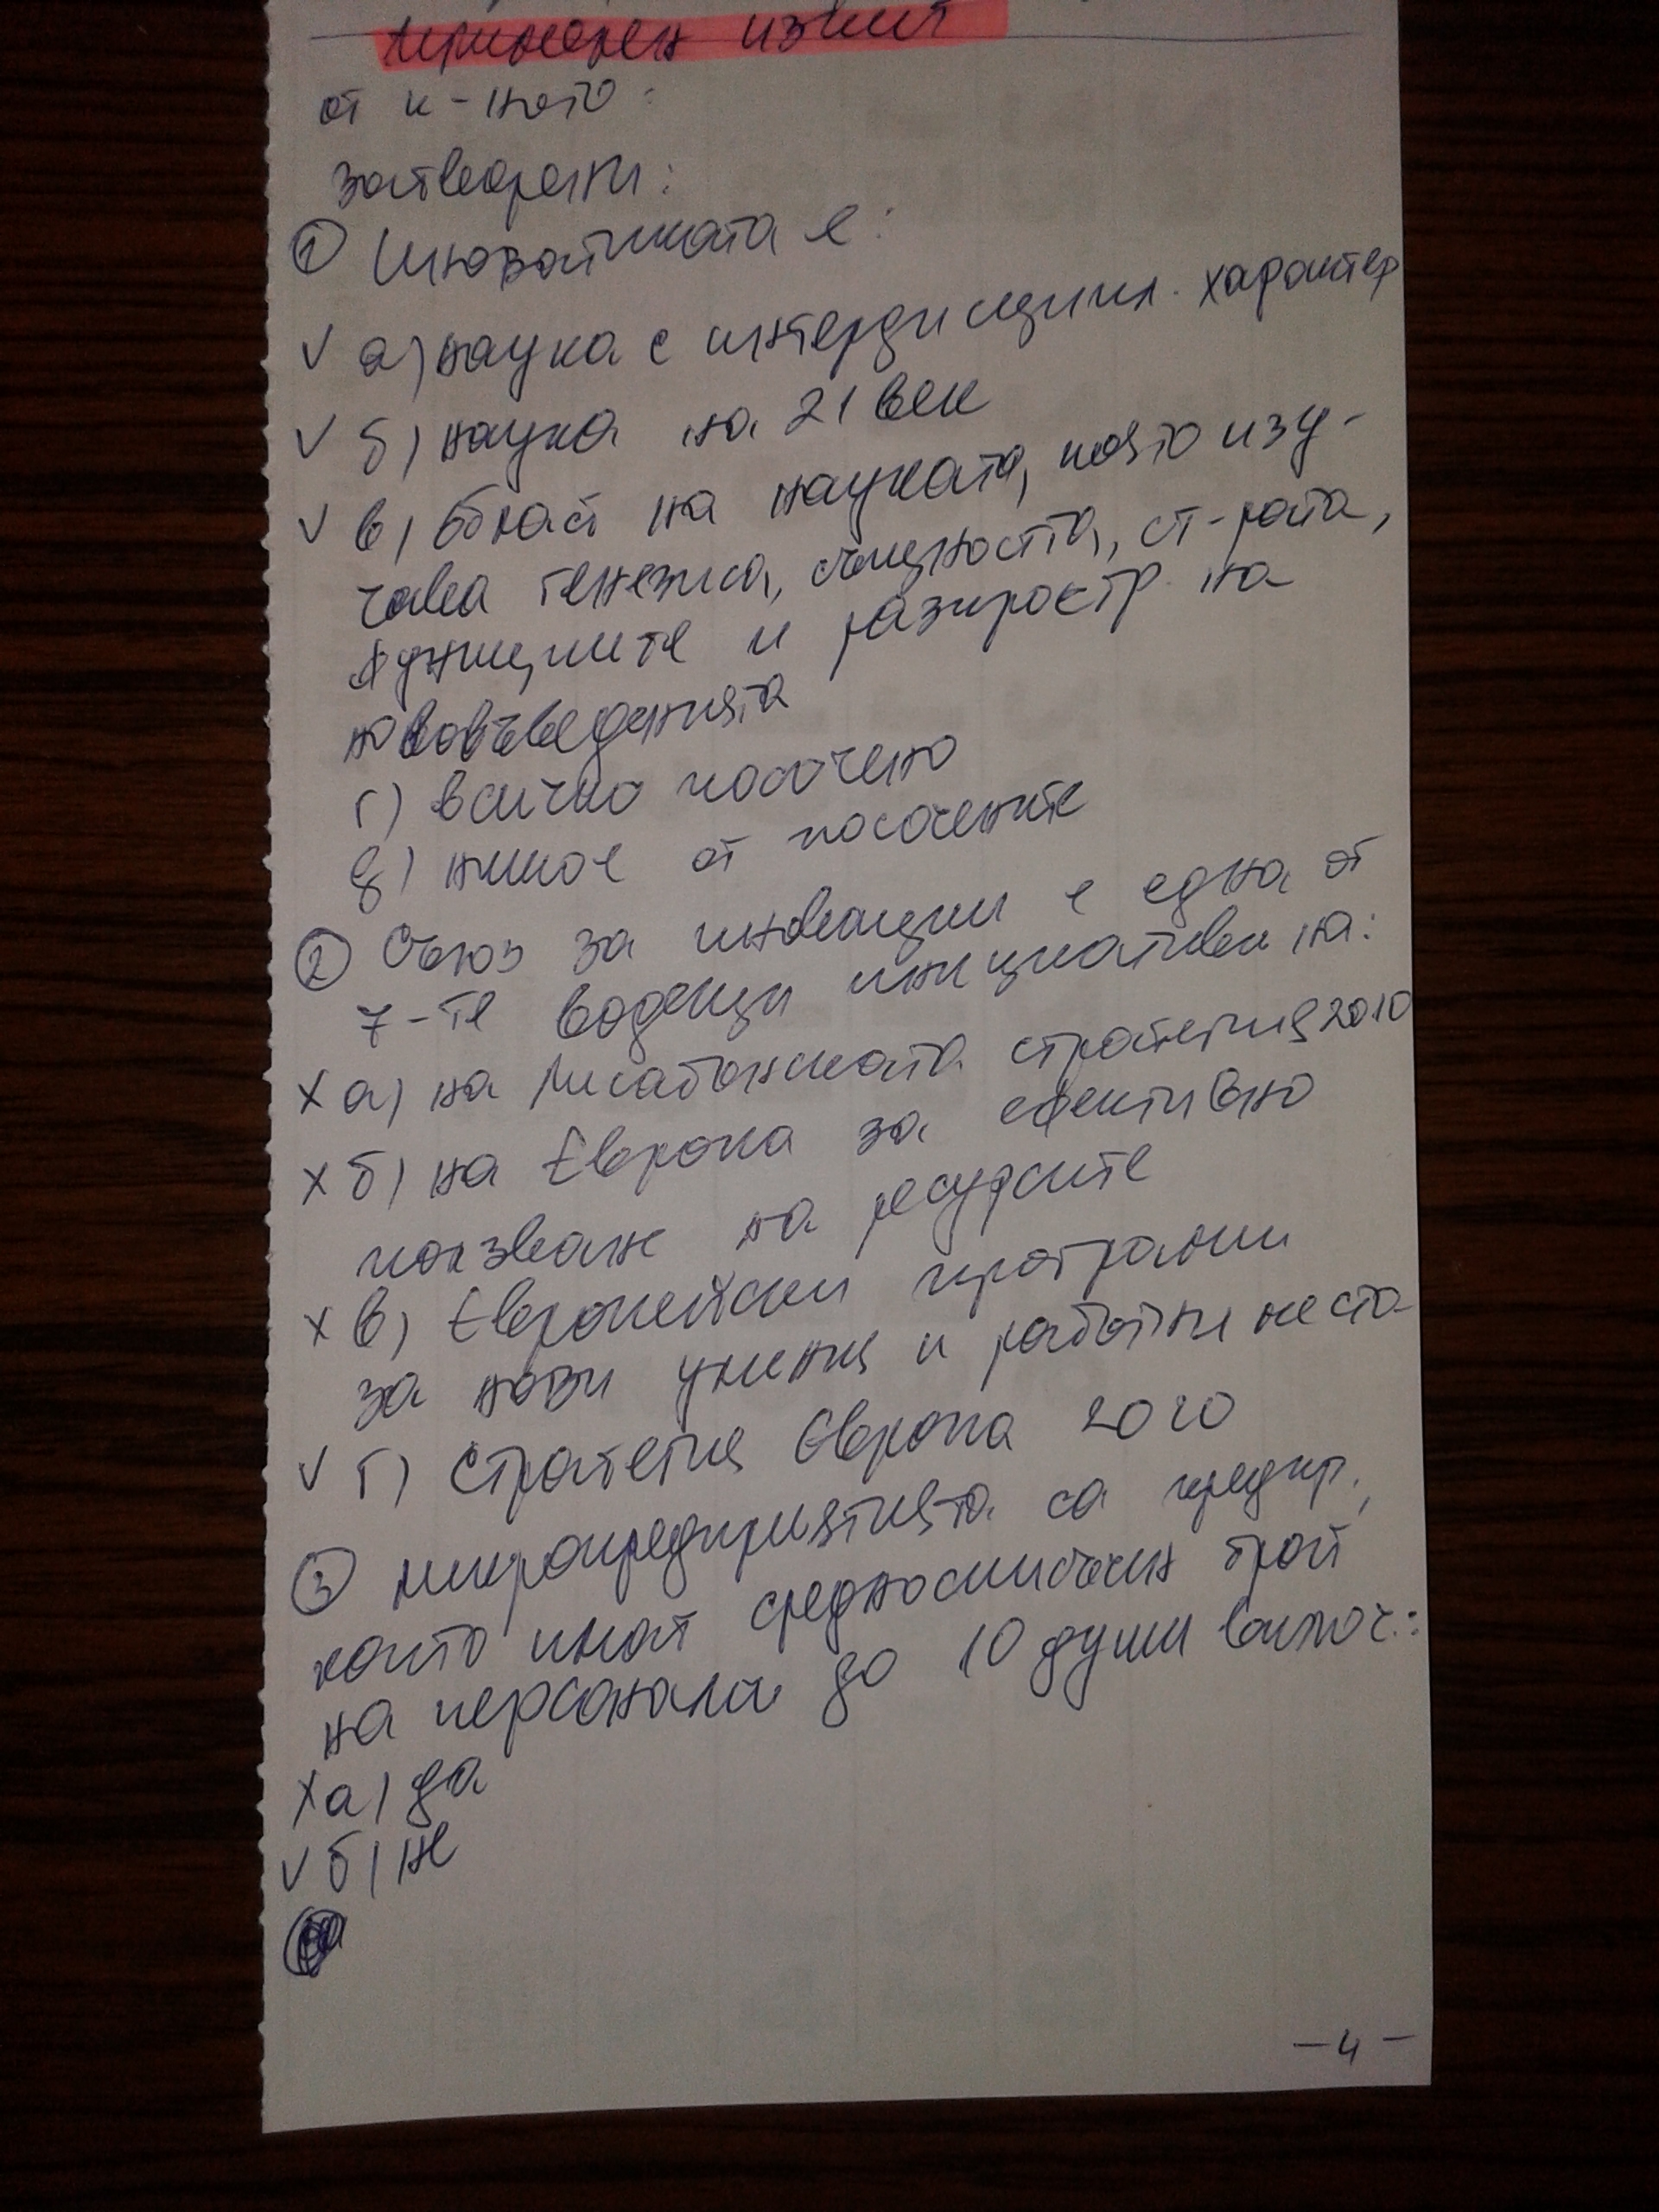 Примерен изпит
от к-ното:
Затворени:
① Иноватиката е:
✓ а) наука с интердисципл. характер
✓ б) наука на 21 век
✓ в) област на науката, която изу-
чава генезиса, същността, ст-рата,
функциите и разпростр. на
нововъведенията
г) всичко посочено
д) никое от посочените
② Съюз за иновации е една от
7-те водещи инициативи на:
х а) на Лисабонската стратегия 2010
х б) на Европа за ефективно
ползване на ресурсите
х в) Европейски програми
за нови умения и работни места
✓ г) Стратегия Европа 2020
③ Микропредприятията са предпр.,
които имат средносписъчен брой
на персонала до 10 души включ.:
х а) да
✓ б) не
- 4 -